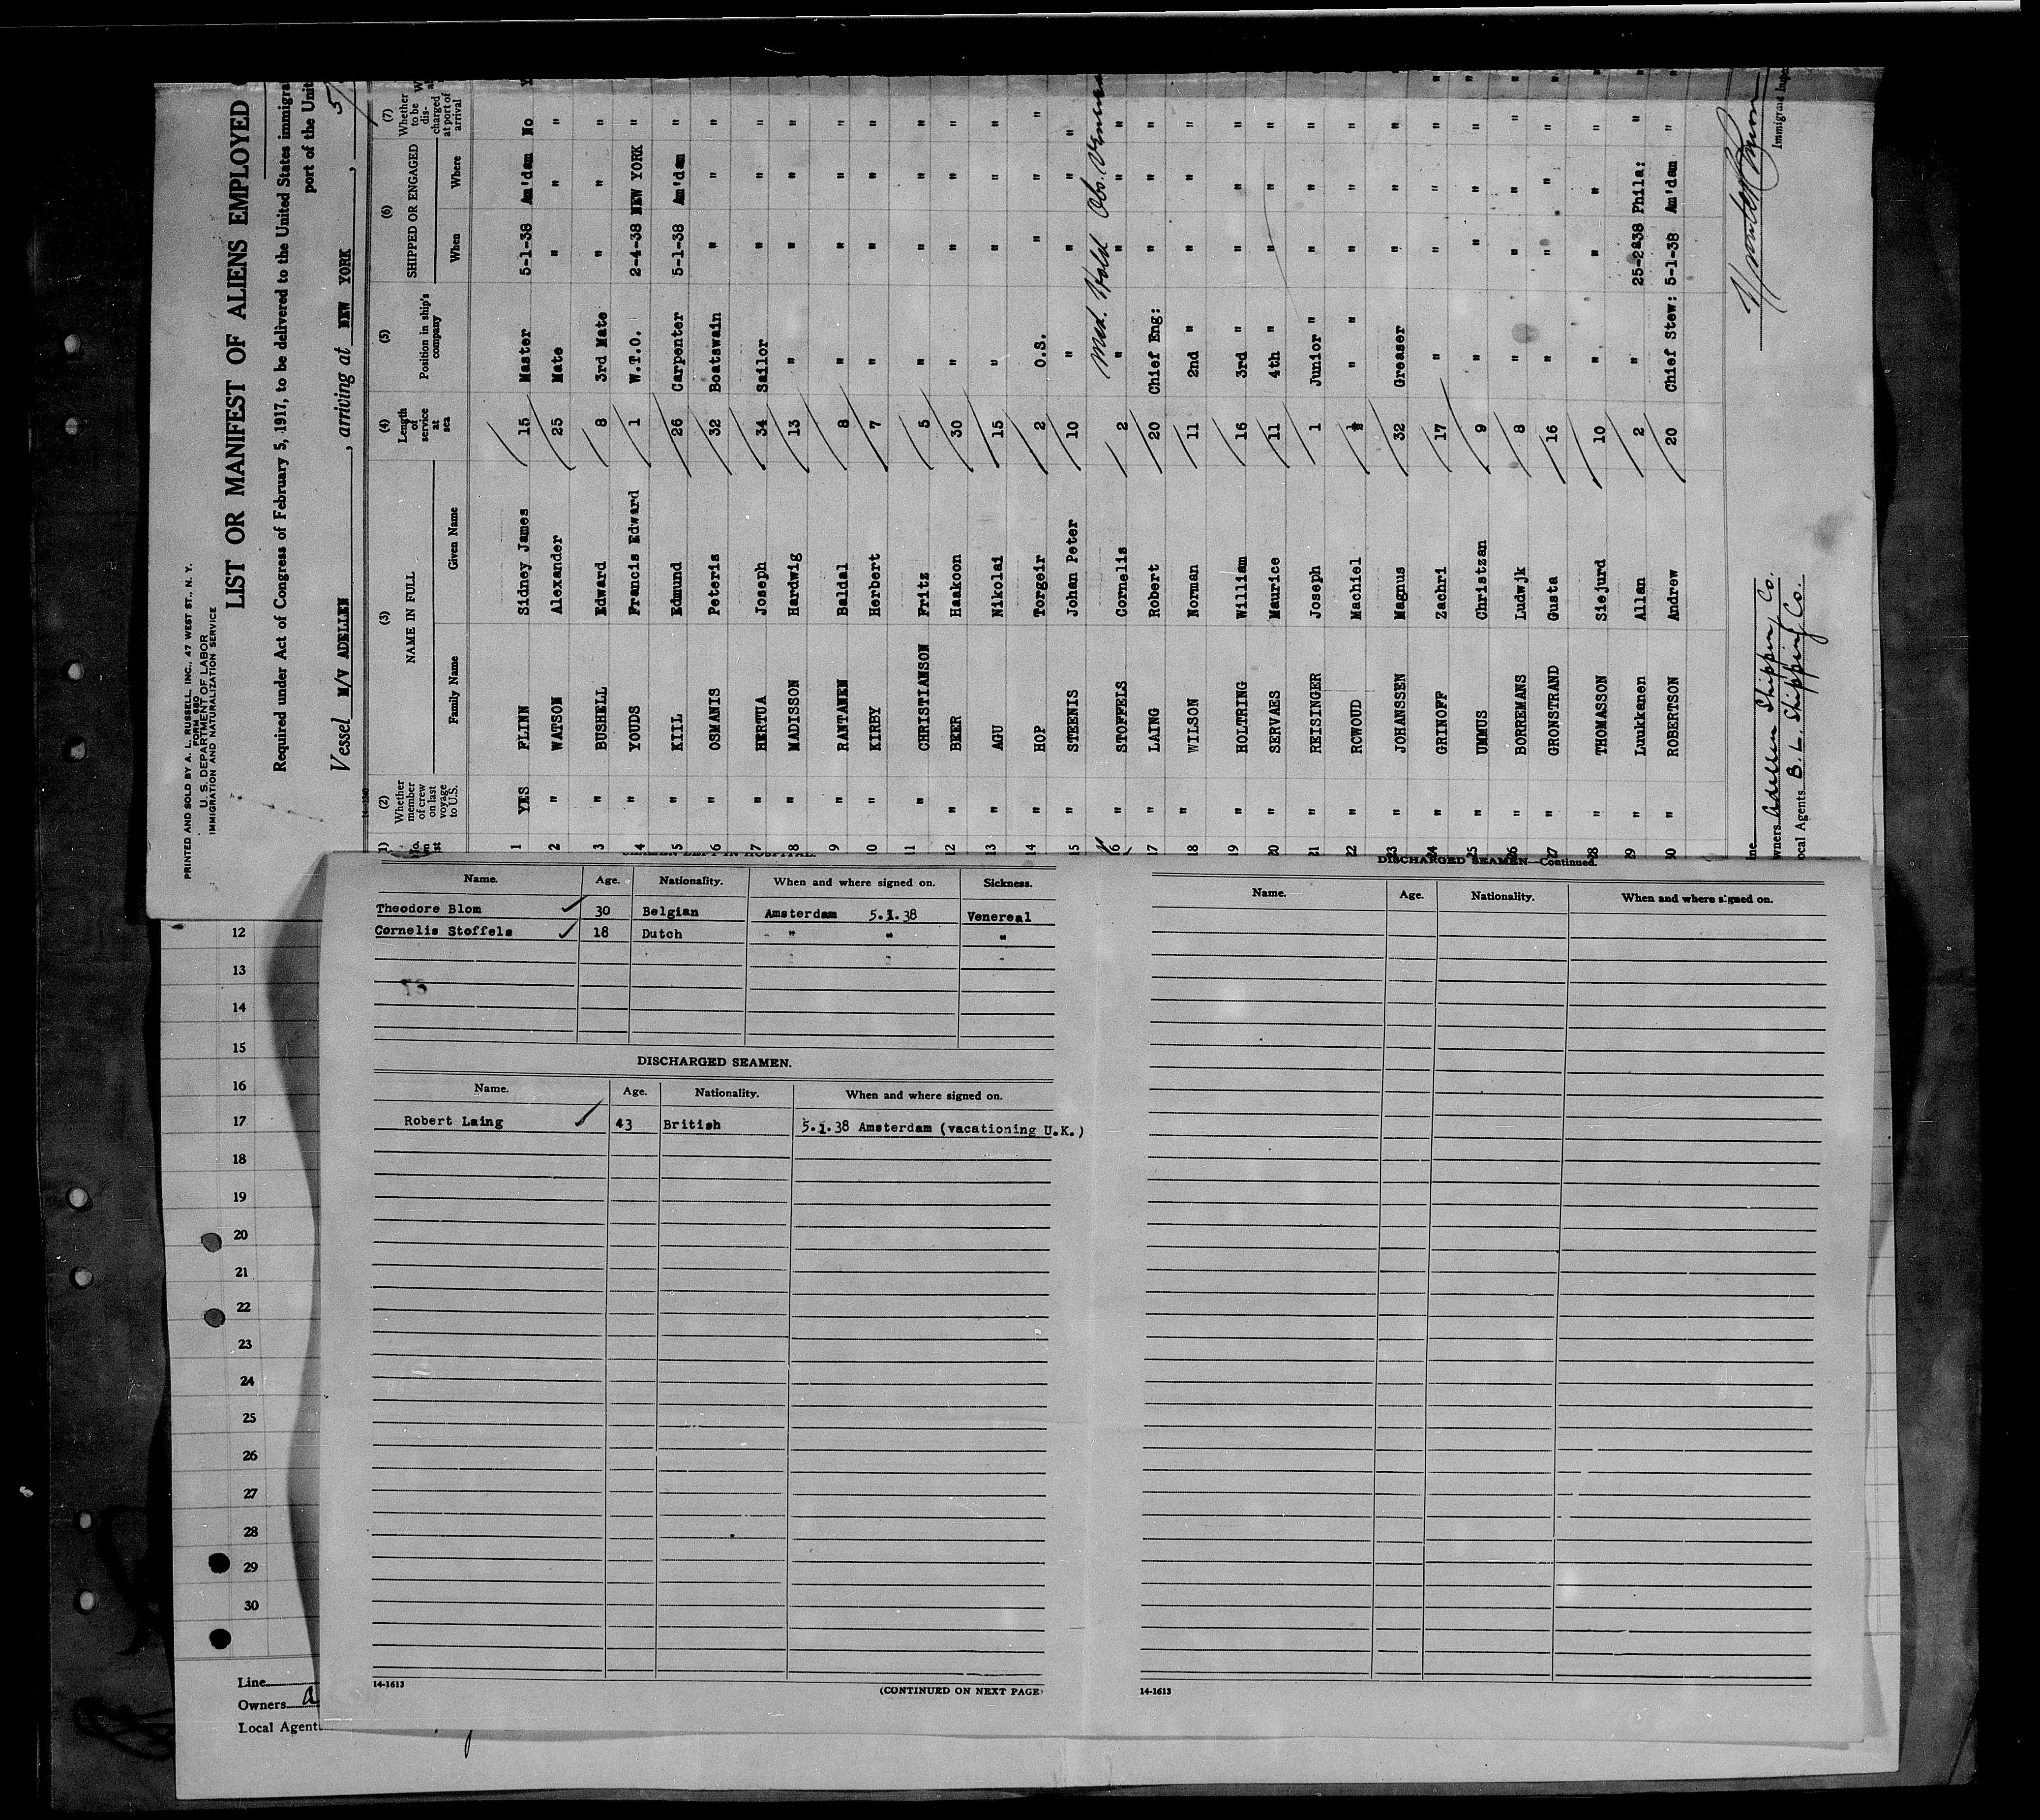 PRINTED AND SOLD BY A. L. RUSSELL, INC., 47 WEST ST., N. Y.
FORM 680
U. S. DEPARTMENT OF LABOR
IMMIGRATION AND NATURALIZATION SERVICE
LIST OR MANIFEST OF ALIENS EMPLOYED
Required under Act of Congress of February 5, 1917, to be delivered to the United States immigra
port of the Unit
Vessel M/V ADELLEN, arriving at NEW YORK, 5/
(2) Whether member of crew on last voyage to U.S. (3) NAME IN FULL Family Name Given Name (4) Length of service at sea (5) Position in ship's company (6) SHIPPED OR ENGAGED When Where (7) Whether to be discharged at port of arrival
1 YES FLINN Sidney James 15 Master 5-1-38 Am'dam No
2 " WATSON Alexander 25 Mate " " "
3 " BUSHELL Edward 8 3rd Mate " " "
4 " YOUDS Francis Edward 1 W.T.O. 2-4-38 NEW YORK "
5 " KIIL Edmund 26 Carpenter 5-1-38 Am'dam "
6 " OSMANIS Peteris 32 Boatswain " " "
7 " HERTUA Joseph 34 Sailor " " "
8 " MADISSON Hardwig 13 " " " "
9 " RANTANEN Baldal 8 " " " "
10 " KIRBY Herbert 7 " " " "
11 " CHRISTIANSON Fritz 5 " " " "
12 " BEER Haakoon 30 " " " "
13 " AGU Nikolai 15 " " " "
14 " HOP Torgeir 2 O.S. " " "
15 " STEENIS Johan Peter 10 " " " "
Med. Hold Obs.
16 " STOFFELS Cornelis 2 " " " "
17 " LAING Robert 20 Chief Eng: " " "
18 " WILSON Norman 11 2nd " " " "
19 " HOLTRING William 16 3rd " " " "
20 " SERVAES Maurice 11 4th " " " "
21 " REISINGER Joseph 1 Junior " " " "
22 " ROWOUD Machiel " " " " "
23 " JOHANSSEN Magnus 32 Greaser " " "
24 " GRINOFF Zachri 17 " " " "
25 " UMMUS Christzan 9 " " " "
26 " BORREMANS Ludwjk 8 " " " "
27 " GRONSTRAND Gusta 16 " " " "
28 " THOMASSON Siejurd 10 " " " "
29 " Luukkanen Allan 2 " 25-2-38 Phila: "
30 " ROBERTSON Andrew 20 Chief Stew: 5-1-38 Am'dam "
Line
Owners Adellen Shipping Co.
Local Agents B. L. Shipping Co.
Immigrant Inspe
SEAMEN LEFT IN HOSPITAL.
Name. Age. Nationality. When and where signed on. Sickness.
Theodore Blom 30 Belgian Amsterdam 5.1.38 Venereal
Cornelis Stoffels 18 Dutch " " "
DISCHARGED SEAMEN.
Name. Age. Nationality. When and where signed on.
Robert Laing 43 British 5.1.38 Amsterdam (vacationing U.K.)
14-1613
(CONTINUED ON NEXT PAGE)
DISCHARGED SEAMEN—Continued.
Name. Age. Nationality. When and where signed on.
14-1613
12
13
14
15
16
17
18
19
20
21
22
23
24
25
26
27
28
29
30
Line
Owners
Local Agents